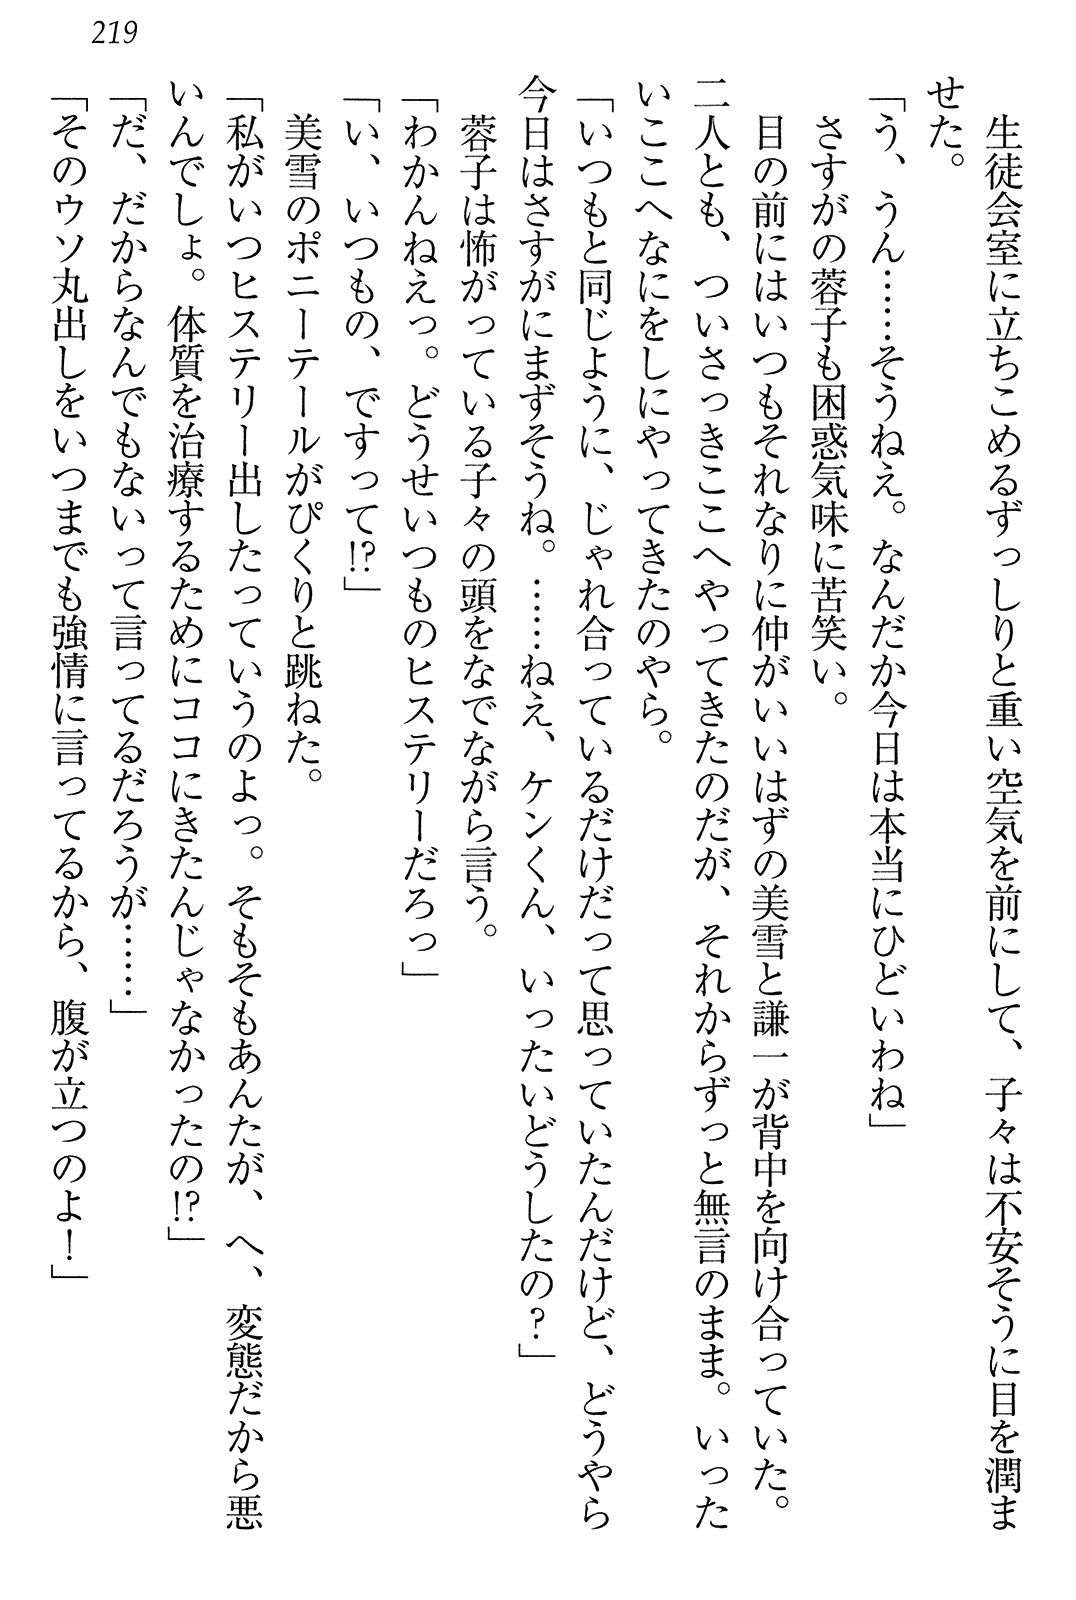 219
　生徒会室に立ちこめるずっしりと重い空気を前にして、子々は不安そうに目を潤ま
せた。
「う、うん……そうねえ。なんだか今日は本当にひどいわね」
　さすがの蓉子も困惑気味に苦笑い。
　目の前にはいつもそれなりに仲がいいはずの美雪と謙一が背中を向け合っていた。
二人とも、ついさっきここへやってきたのだが、それからずっと無言のまま。いった
いここへなにをしにやってきたのやら。
「いつもと同じように、じゃれ合っているだけだって思っていたんだけど、どうやら
今日はさすがにまずそうね。……ねえ、ケンくん、いったいどうしたの？」
　蓉子は怖がっている子々の頭をなでながら言う。
「わかんねえっ。どうせいつものヒステリーだろっ」
「い、いつもの、ですって!?」
　美雪のポニーテールがぴくりと跳ねた。
「私がいつヒステリー出したっていうのよっ。そもそもあんたが、へ、変態だから悪
いんでしょ。体質を治療するためにココにきたんじゃなかったの!?」
「だ、だからなんでもないって言ってるだろうが……」
「そのウソ丸出しをいつまでも強情に言ってるから、腹が立つのよ！」